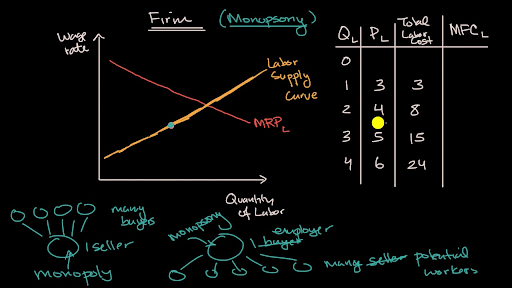 Firm (Monopsony)
Wage
rate
Labor
Supply
Curve
MRP_L
Quantity
of Labor
Q_L P_L Total Labor Cost MFC_L
0
1 3 3
2 4 8
3 5 15
4 6 24
many
buyers
1 seller
monopoly
monopsony
employer
1 buyer
many seller potential
workers